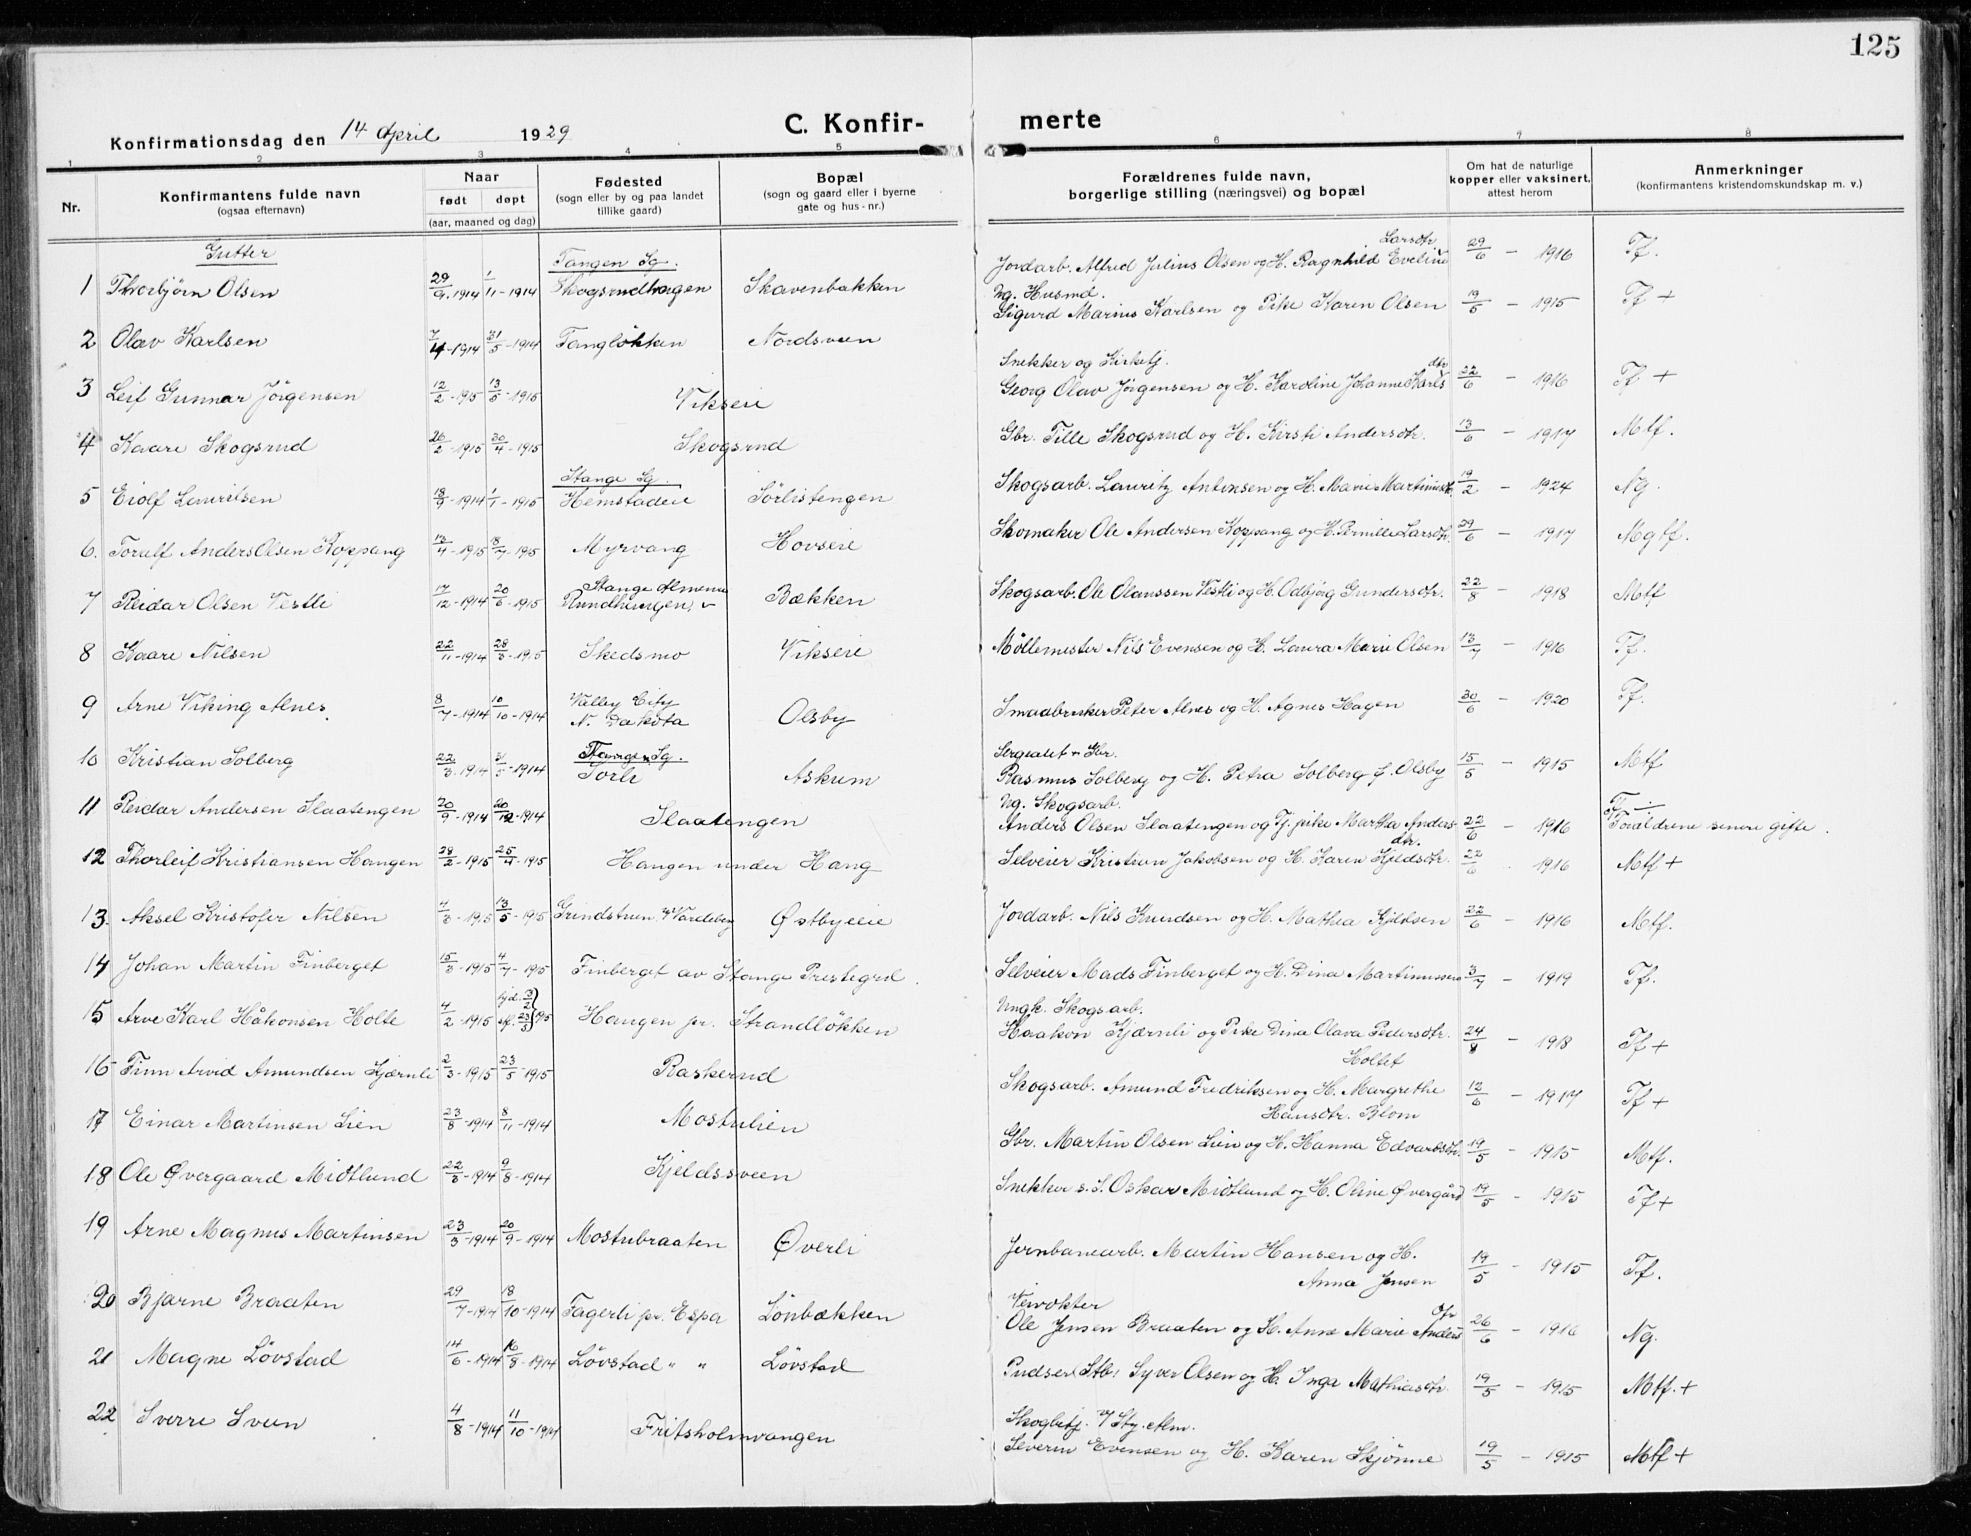 125
Konfirmationsdag den 14 April 1929
C. Konfir- merte
1 2 3 4 5 6 7 8
Nr.
Konfirmantens fulde navn
(ogsaa efternavn)
Naar
født døpt
(aar, maaned og dag)
Fødested
(sogn eller by og paa landet
tillike gaard)
Bopæl
(sogn og gaard eller i byerne
gate og hus-nr.)
Forældrenes fulde navn,
borgerlige stilling (næringsvei) og bopæl
Om hat de naturlige
kopper eller vaksinert,
attest herom
Anmerkninger
(konfirmantens kristendomskundskap m. v.)
Gutter
Tangen Sg.
1 Thorbjörn Olsen 29/9-1914 1/11-1914 Skogsrudhagen Skavenbakken Jordarb. Alfred Julius Olsen og H. Ragnhild Eveline Larsdtr 29/6 - 1916 Tf.
2 Olav Karlsen 7/4-1914 31/5-1914 Tangløkken Nordsveen
Ug. Husmd.
Sigurd Marius Karlsen og Pike Karen Olsen 19/5 - 1915 Tf +
3 Leif Gunnar Jörgensen 12/2-1915 13/5-1915 Vikseie
Snekker og Kirketj.
Georg Olav Jörgensen og H. Karoline Johanne Karlsdtr 22/6 - 1916 Tf. +
4 Kaare Skogsrud 26/2-1915 30/4-1915 Skogsrud Gbr. Tille Skogsrud og H. Kirsti Andersdtr. 13/6 - 1917 Mtf.
Stange Sg.
5 Eiolf Lauritsen 18/9-1914 1/1-1915 Hemstadeie Sörlistengen Skogsarb. Lauritz Antonsen og H. Marie Martinusdtr. 19/2 - 1924 Ng.
6. Torulf Anders Olsen Koppang 13/4-1915 18/7-1915 Myrvang Hovseie Skomaker Ole Andersen Koppang og H. Pernille Larsdtr. 29/6 - 1917 Mgtf.
7 Reidar Olsen Vestli 17/12-1914 20/6-1915 Stange Almenn Rundhaugen Bækken Skogsarb. Ole Olaussen Vestli og H. Odbjörg Gundersdtr. 22/8 - 1918 Mtf
8 Kaare Nilsen 22/11-1914 28/3-1915 Skedsmo Vikseie Möllemester Nils Evensen og H. Laura Marie Olsen 13/7 - 1916 Tf.
9 Arne Viking Alnes 8/7-1914 10/10-1914 Valley City N. Dakota Olsby Smaabruker Peter Alnes og H. Agnes Hagen 30/6 - 1920 Tf.
Tangen Sg.
10 Kristian Solberg 22/3-1914 31/5-1914 Torli Askum
Sergeant + Gbr.
Rasmus Solberg og H. Petra Solberg f. Olsby 15/5 - 1915 Mtf
11 Reidar Andersen Slaatengen 20/9-1914 20/12-1914 Slaatengen
Ug. Skogsarb.
Anders Olsen Slaatengen og Tj. pike Martha Andersdtr. 22/6 - 1916 T ÷ Forældrene senere gifte.
12 Thorleif Kristiansen Haugen 28/2-1915 25/4-1915 Haugen under Haug Selveier Kristian Jakobsen og H. Karen Kjeldsdtr. 22/6 1916 Mtf +
13. Aksel Kristofer Nilsen 4/3-1915 13/5-1915 Grindstuen v/Vardeberg Østbyeie Jordarb. Nils Knudsen og H. Mathea Kjeldsen 22/6 - 1916 Mtf.
14 Johan Martin Finberget 15/3-1915 4/7-1915 Finberget av Stange Prestegrd. Selveier Mads Finberget og H. Dina Martinussen 3/7 - 1919 Tf.
15 Arve Karl Håkonsen Holte 4/2-1915 hjd. 3/2 stf. 23/5 1915 Haugen pr. Strandlökken
Ungk. Skogsarb.
Haakon Kjærnli og Pike Dina Olava Pedersdtr. Holtet 24/8 - 1918 Tf +
16 Finn Arvid Amundsen Kjærnli 2/3-1915 23/5-1915 Raskerud Skogsarb. Amund Fredriksen og H. Margrethe Hansdtr. Blom 12/6 - 1917 Tf +
17 Einar Martinsen Lien 23/8-1914 8/11-1914 Mostulien Gbr. Martin Olsen Lien og H. Hanna Edvardsdtr. 19/5 - 1915 Mtf.
18 Ole Øvergaard Midtlund 22/3-1914 9/8-1914 Kjeldssveen Snekker s. S. Oskar Midtlund og H. Oline Øvergård 19/5 - 1915 Tf +
19 Arne Magnus Martinsen 23/3-1914 20/9-1914 Mostubraaten Øverli Jernbanearb. Martin Hansen og H. Anna Jensen 19/5 - 1915 Tf.
20 Bjarne Braaten 29/7-1914 18/10-1914 Fagerli pr. Espa Lönbækken
Veivokter
Ole Jensen Braaten og H. Anne Marie Andersdtr 26/6 - 1916 Ng.
21 Magne Lövstad 14/6-1914 16/8-1914 Lövstad " " Lövstad Pudser Stb. Syver Olsen og H. Inga Mathiasdtr. 19/5 - 1915 Mtf. +
22 Sverre Sveen 4/8-1914 11/10-1914 Fritsholmvangen
Skogbetj. v/ Stg. Alm.
Severin Evensen og H. Karen Skjönne 19/5 - 1915 Mtf +